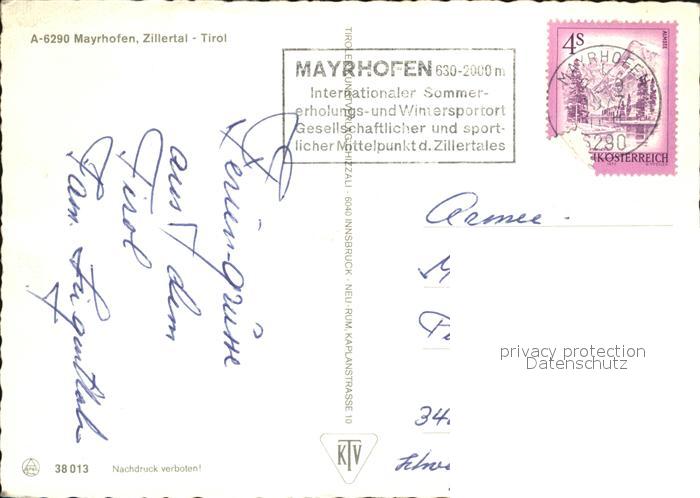 A-6290 Mayrhofen, Zillertal - Tirol
MAYRHOFEN 630-2000 m
Internationaler Sommer-
erholungs- und Wintersportort
Gesellschaftlicher und sport-
licher Mittelpunkt d. Zillertales
4S
ALMSEE
MAYRHOFEN
6290
ÖSTERREICH
TIROLER KUNSTVERLAG CHIZZALI · 6040 INNSBRUCK - NEU-RUM, KAPLANSTRASSE 10
Feriengrüsse
aus dem
Tirol
Fam.
34
privacy protection
Datenschutz
KTV
38 013 Nachdruck verboten!